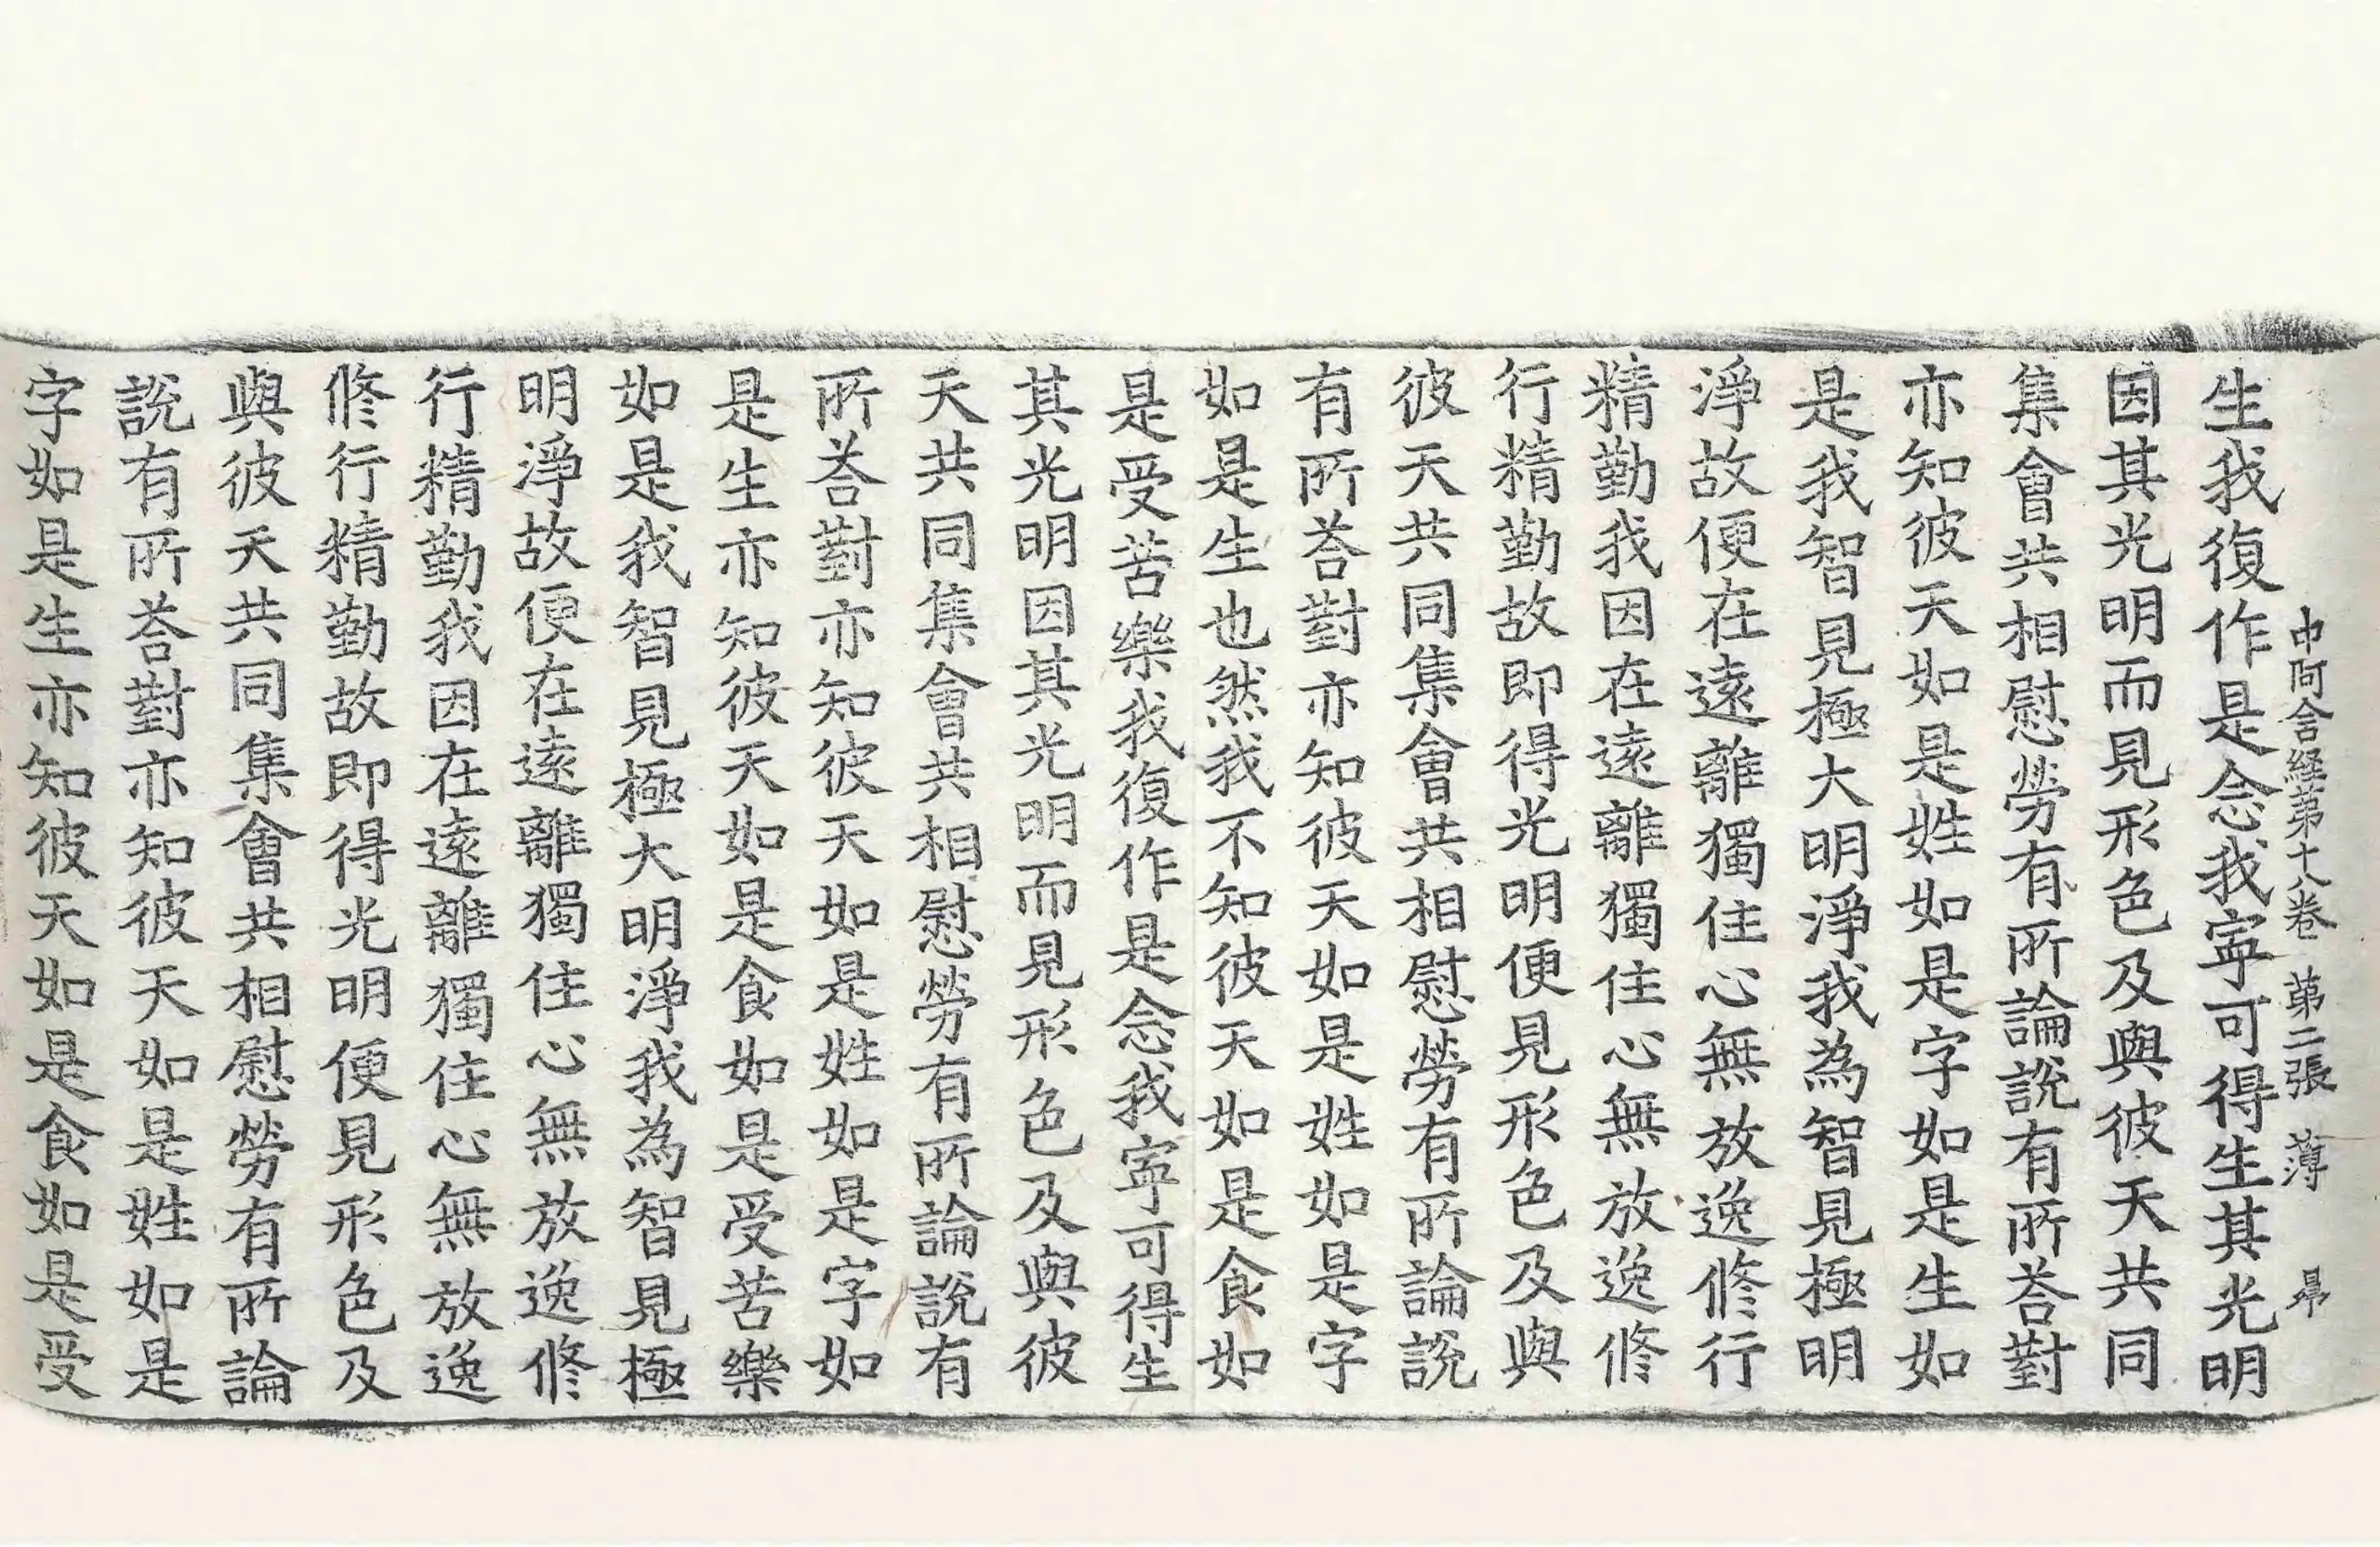 中阿含経第十八卷 第二張 薄
生我復作是念我寧可得生其光明
因其光明而見形色及與彼天共同
集會共相慰勞有所論說有所荅對
亦知彼天如是姓如是字如是生如
是我智見極大明淨我為智見極明
淨故便在遠離獨住心無放逸修行
精勤我因在遠離獨住心無放逸修
行精勤故即得光明便見形色及與
彼天共同集會共相慰勞有所論說
有所荅對亦知彼天如是姓如是字
如是生也然我不知彼天如是食如
是受苦樂我復作是念我寧可得生
其光明因其光明而見形色及與彼
天共同集會共相慰勞有所論說有
所荅對亦知彼天如是姓如是字如
是生亦知彼天如是食如是受苦樂
如是我智見極大明淨我為智見極
明淨故便在遠離獨住心無放逸修
行精勤我因在遠離獨住心無放逸
修行精勤故即得光明便見形色及
與彼天共同集會共相慰勞有所論
說有所荅對亦知彼天如是姓如是
字如是生亦知彼天如是食如是受